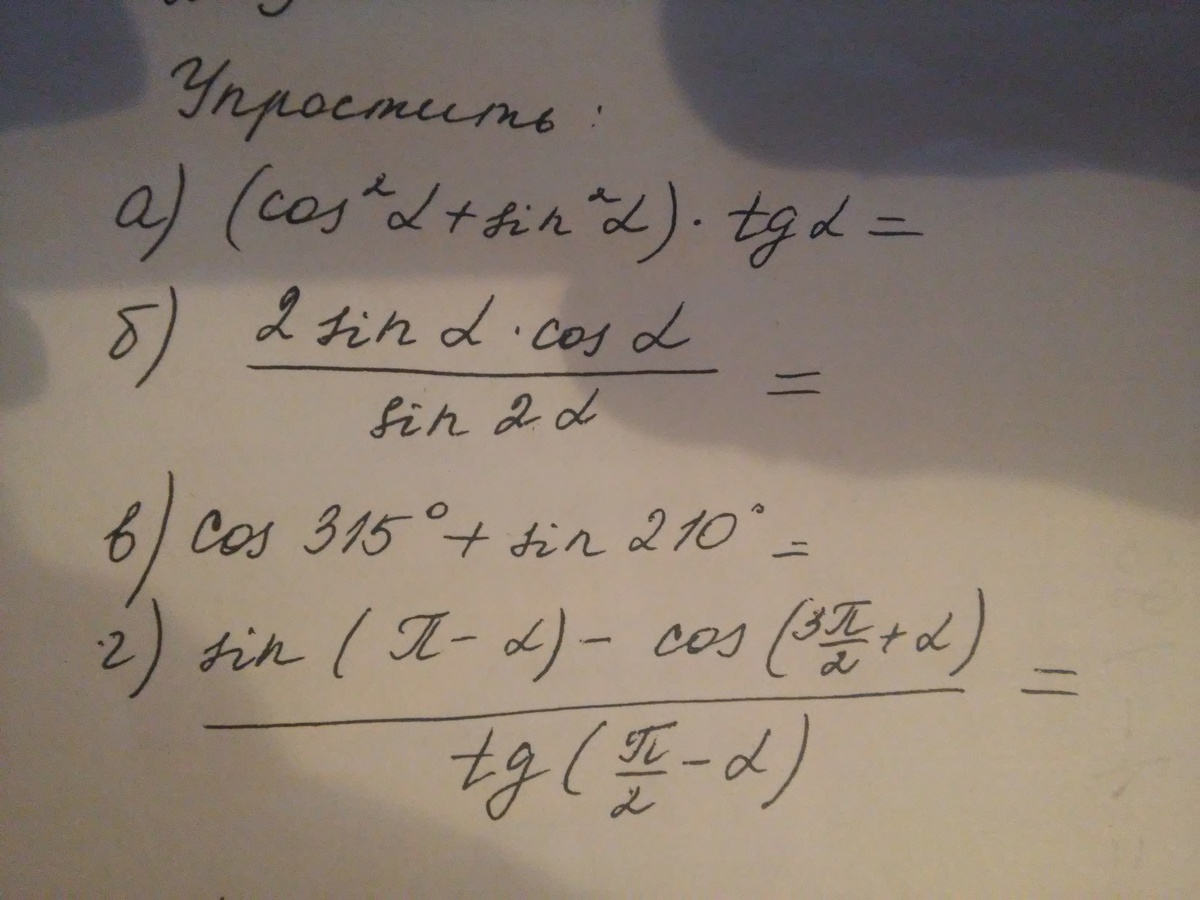 Упростить:
а) (cos²α + sin²α) · tg α =
б) 2 sin α · cos α / sin 2α =
в) cos 315° + sin 210° =
г) sin (π - α) - cos (3π/2 + α) / tg (π/2 - α) =